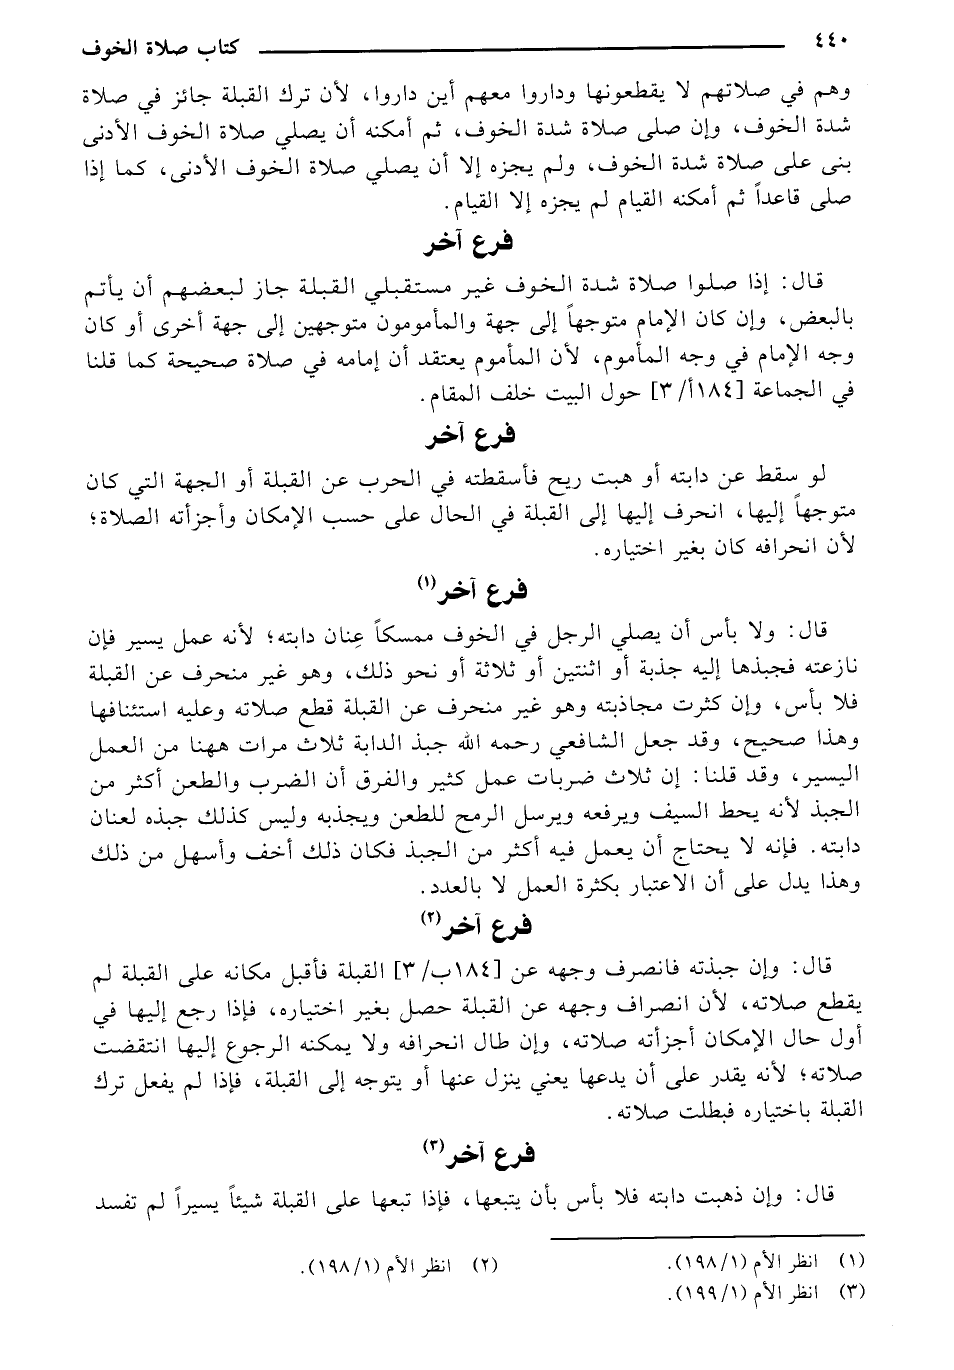 ٤٤٠ كتاب صلاة الخوف
وهم في صلاتهم لا يقطعونها وداروا معهم أين داروا، لأن ترك القبلة جائز في صلاة
شدة الخوف، وإن صلى صلاة شدة الخوف، ثم أمكنه أن يصلي صلاة الخوف الأدنى
بنى على صلاة شدة الخوف، ولم يجزه إلا أن يصلي صلاة الخوف الأدنى، كما إذا
صلى قاعداً ثم أمكنه القيام لم يجزه إلا القيام.
فرع آخر
قال: إذا صلوا صلاة شدة الخوف غير مستقبلي القبلة جاز لبعضهم أن يأتم
بالبعض، وإن كان الإمام متوجهاً إلى جهة والمأمومون متوجهين إلى جهة أخرى أو كان
وجه الإمام في وجه المأموم، لأن المأموم يعتقد أن إمامه في صلاة صحيحة كما قلنا
في الجماعة [١٨٤أ/ ٣] حول البيت خلف المقام.
فرع آخر
لو سقط عن دابته أو هبت ريح فأسقطته في الحرب عن القبلة أو الجهة التي كان
متوجهاً إليها، انحرف إليها إلى القبلة في الحال على حسب الإمكان وأجزأته الصلاة؛
لأن انحرافه كان بغير اختياره.
فرع آخر(١)
قال: ولا بأس أن يصلي الرجل في الخوف ممسكاً عِنان دابته؛ لأنه عمل يسير فإن
نازعته فجبذها إليه جذبة أو اثنتين أو ثلاثة أو نحو ذلك، وهو غير منحرف عن القبلة
فلا بأس، وإن كثرت مجاذبته وهو غير منحرف عن القبلة قطع صلاته وعليه استئنافها
وهذا صحيح، وقد جعل الشافعي رحمه الله جبذ الدابة ثلاث مرات ههنا من العمل
اليسير، وقد قلنا: إن ثلاث ضربات عمل كثير والفرق أن الضرب والطعن أكثر من
الجبذ لأنه يحط السيف ويرفعه ويرسل الرمح للطعن ويجذبه وليس كذلك جبذه لعنان
دابته. فإنه لا يحتاج أن يعمل فيه أكثر من الجبذ فكان ذلك أخف وأسهل من ذلك
وهذا يدل على أن الاعتبار بكثرة العمل لا بالعدد.
فرع آخر(٢)
قال: وإن جبذته فانصرف وجهه عن [١٨٤ب/ ٣] القبلة فأقبل مكانه على القبلة لم
يقطع صلاته، لأن انصراف وجهه عن القبلة حصل بغير اختياره، فإذا رجع إليها في
أول حال الإمكان أجزأته صلاته، وإن طال انحرافه ولا يمكنه الرجوع إليها انتقضت
صلاته؛ لأنه يقدر على أن يدعها يعني ينزل عنها أو يتوجه إلى القبلة، فإذا لم يفعل ترك
القبلة باختياره فبطلت صلاته.
فرع آخر(٣)
قال: وإن ذهبت دابته فلا بأس بأن يتبعها، فإذا تبعها على القبلة شيئاً يسيراً لم تفسد
(١) انظر الأم (١/ ١٩٨). (٢) انظر الأم (١/ ١٩٨).
(٣) انظر الأم (١/ ١٩٩).